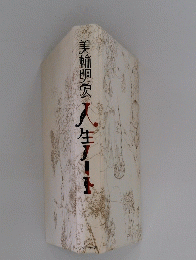 美輪明宏
人生ノート